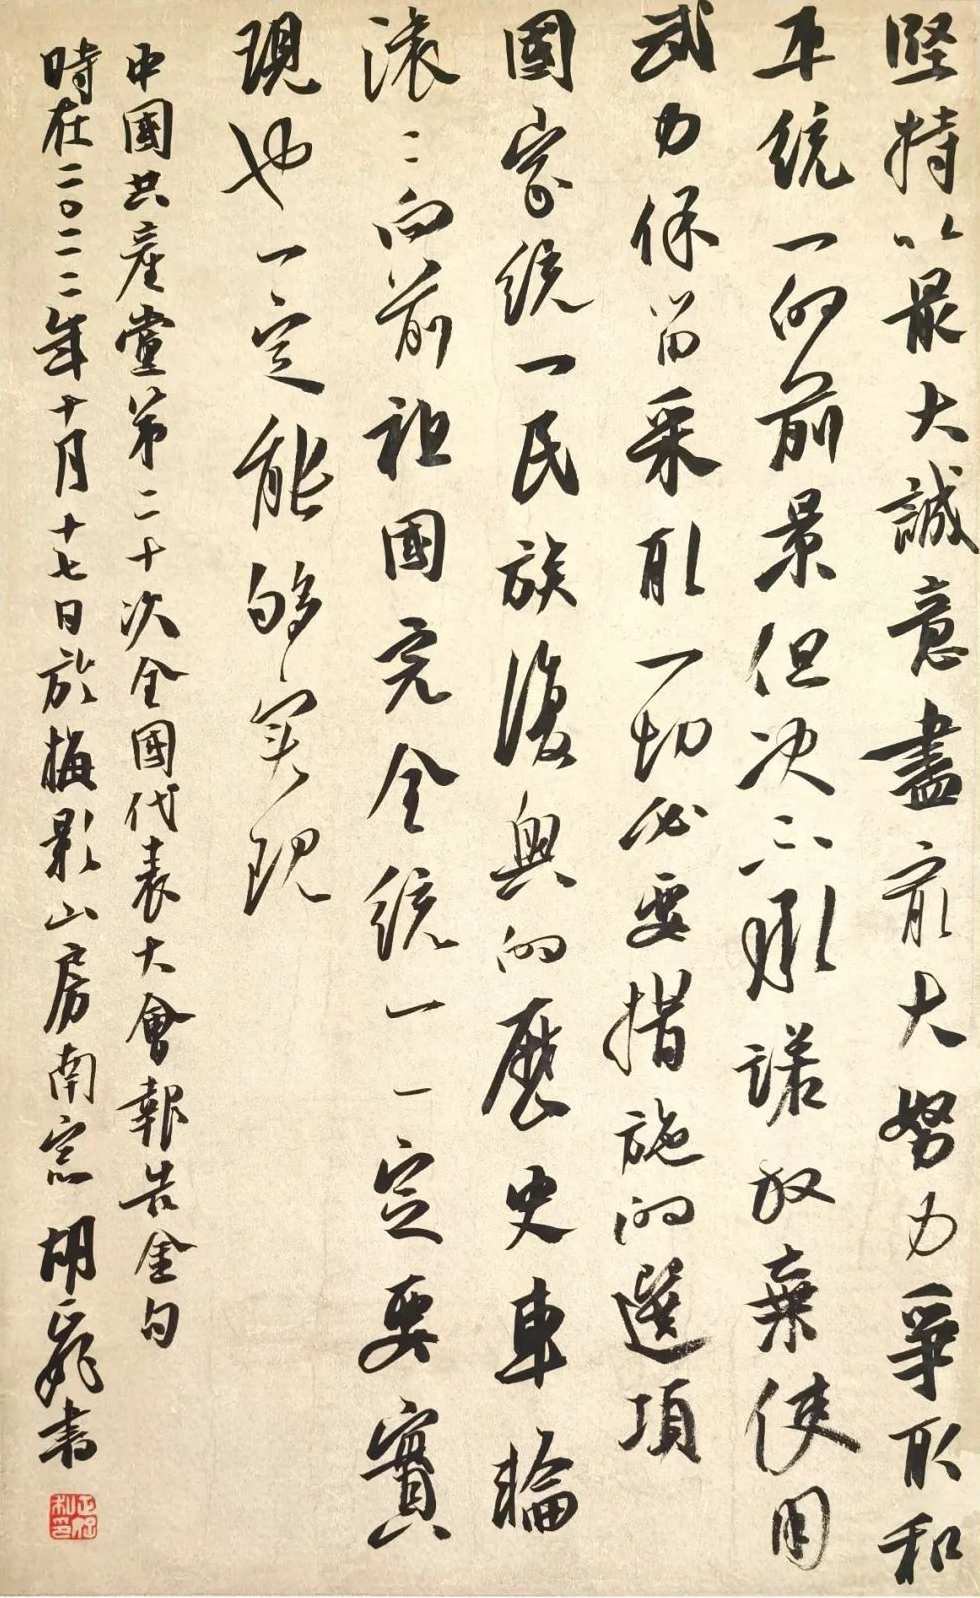 堅持以最大誠意盡最大努力爭取和
平統一的前景但決不承諾放棄使用
武力保留采取一切必要措施的選項
國家統一民族復興的歷史車輪
滾〻向前祖國完全統一一定要實
現也一定能够实現
中國共產黨第二十次全國代表大會報告金句
時在二〇二二年十月十七日於梅影山房南窓 胡正書